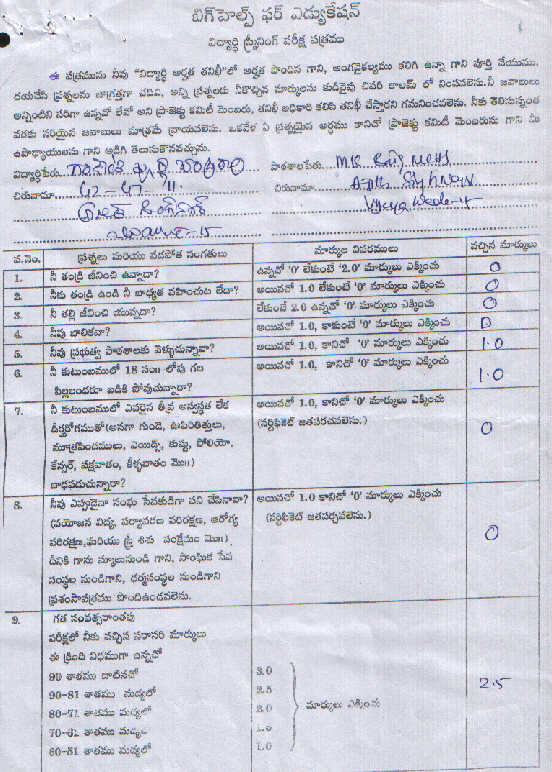 బిగ్‌హెల్ప్ ఫర్ ఎడ్యుకేషన్
విద్యార్థి స్క్రీనింగ్ పరీక్ష పత్రము
ఈ పత్రమును నీవు "విద్యార్థి అర్హత తనిఖీ"లో అర్హత పొందిన గాని, అంగవైకల్యము కలిగి ఉన్నా గాని పూర్తి చేయుము.
దయచేసి ప్రశ్నలను జాగ్రత్తగా చదివి, అన్ని ప్రశ్నలకు నీకొచ్చిన మార్కులను కుడివైపు చివరి కాలమ్ లో నింపవలెను.నీ జవాబులు
అన్నింటిని సరిగా ఉన్నదో లేదో అని ప్రాజెక్టు కమిటీ మెంబరు, తనిఖీ అధికారి కలిసి తనిఖీ చేస్తారని గమనించవలెను. నీకు తెలిసినంత
వరకు సరియైన జవాబులు మాత్రమే వ్రాయవలెను. ఒకవేళ ఏ ప్రశ్నయైన అర్థము కానిచో ప్రాజెక్టు కమిటీ మెంబరును గాని మీ
ఉపాధ్యాయులను గాని అడిగి తెలుసుకొనవచ్చును.
విద్యార్థిపేరు పాఠశాలపేరు
చిరునామా 42-47 చిరునామా
ప.నెం. ప్రశ్నలు మరియు వడపోత సంగతులు మార్కుల వివరములు వచ్చిన మార్కులు
1. నీ తండ్రి జీవించి ఉన్నాడా? ఉన్నచో '0' లేకుంటే '2.0' మార్కులు ఎక్కించు 0
2. నీకు తండ్రి ఉండి నీ బాధ్యత వహించుట లేదా? అయినచో 1.0 లేకుంటే '0' మార్కులు ఎక్కించు 0
3. నీ తల్లి జీవించి యున్నదా? లేకుంటే 2.0 ఉన్నచో '0' మార్కులు ఎక్కించు 0
4. నీవు బాలికవా? అయినచో 1.0, కాకుంటే '0' మార్కులు ఎక్కించు 0
5. నీవు ప్రభుత్వ పాఠశాలకు వెళ్ళుచున్నావా? అయినచో 1.0, కానిచో '0' మార్కులు ఎక్కించు 1.0
6. నీ కుటుంబములో 18 సం॥ లోపు గల అయినచో 1.0, కానిచో '0' మార్కులు ఎక్కించు 1.0
పిల్లలందరూ బడికి పోవుచున్నారా?
7. నీ కుటుంబములో ఎవరైన తీవ్ర అస్వస్థత లేక అయినచో 1.0, కానిచో '0' మార్కులు ఎక్కించు 0
దీర్ఘరోగముతో(అనగా గుండె, ఊపిరితిత్తులు, (సర్టిఫికెట్ జతపరచవలెను.)
మూత్రపిండములు, ఎయిడ్స్, కుష్టు, పోలియో,
కేన్సర్, పక్షవాతం, కీళ్ళవాతం మొ॥)
బాధపడుచున్నారా?
8. నీవు ఎప్పుడైనా సంఘ సేవకుడిగా పని చేసినావా? అయినచో 1.0 కానిచో '0' మార్కులు ఎక్కించు 0
(వయోజన విద్య, పర్యావరణ పరిరక్షణ, ఆరోగ్య (సర్టిఫికెట్ జతపర్చవలెను.)
పరిరక్షణ,మరియు స్త్రీ శిశు సంక్షేమం మొ॥)
దీనికి గాను స్కూలునుండి గాని, సాంఘిక సేవ
సంస్థల నుండిగాని, ధర్మసంస్థల నుండిగాని
ప్రశంసాపత్రము పొందిఉండవలెను.
9. గత సంవత్సరాంతపు
పరీక్షలో నీకు వచ్చిన సరాసరి మార్కులు
ఈ క్రింది విధముగా ఉన్నచో
90 శాతము దాటినచో 3.0
90-81 శాతము మధ్యలో 2.5 2.5
80-71 శాతము మధ్యలో 2.0 మార్కులు ఎక్కించు
70-61 శాతము మధ్యలో
60-51 శాతము మధ్యలో 1.0